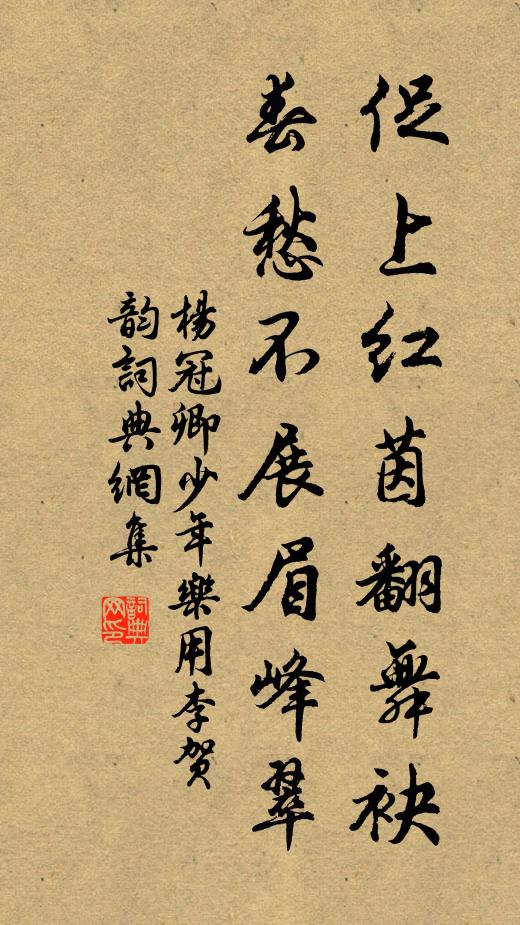 促上红茵翻舞袂
春愁不展眉峰翠
楊冠卿少年樂用李贺
韵詞典網集
詞典
网印